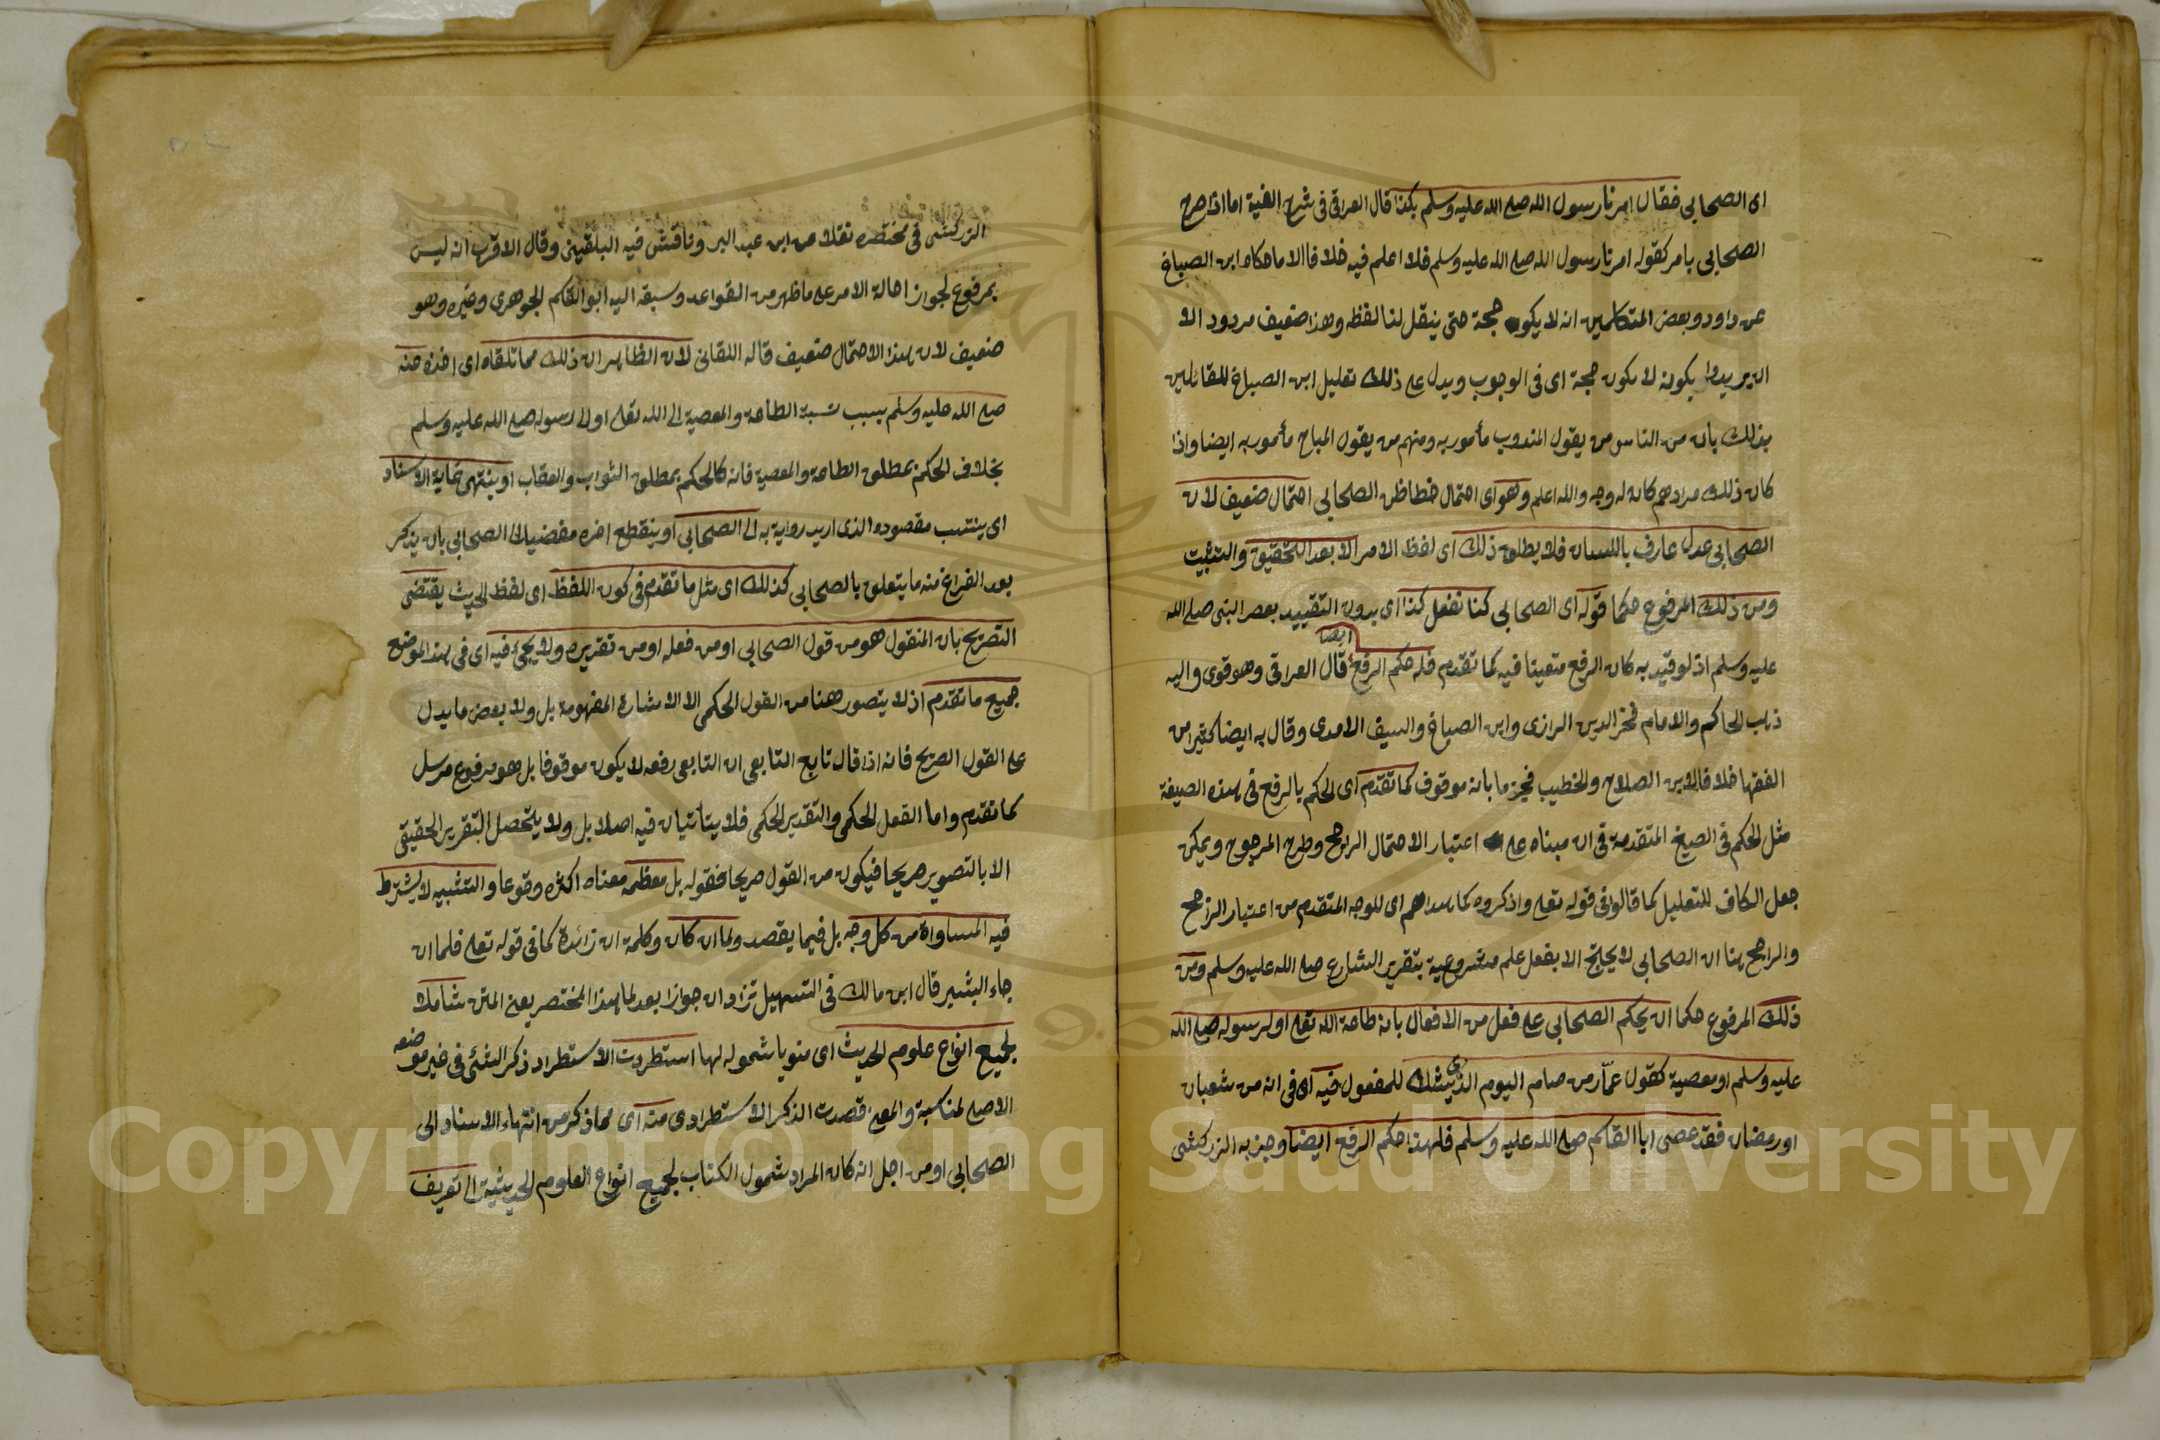 اى الصحابي فقال امرنا رسول الله صلى الله عليه وسلم بكذا قال العراقي في شرح الفية اما اذا صرح
الصحابي بامر كقوله امرنا رسول الله صلى الله عليه وسلم فلا اعلم فيه خلافا الا ما حكاه ابن الصباغ
عن داود وبعض المتكلمين انه لا يكون حجة حتى ينقل لنا لفظه وهذا ضعيف مردود الا
ان يريدوا بكونه لا يكون حجة اى في الوجوب ويدل على ذلك تعليل ابن الصباغ للقائلين
بذلك بان من الناس من يقول المندوب مأمور به ومنهم من يقول المباح مأمور به ايضا واذا
كان ذلك مرادهم كان له وجه والله اعلم وهو اى احتمال خطا ظن الصحابي احتمال ضعيف لان
الصحابي عدل عارف باللسان فلا يطلق ذلك اى لفظ الامر الا بعد التحقيق والتثبيت
ومن ذلك المرفوع حكما قوله اى الصحابي كنا نفعل كذا اى بدون التقييد بعصر النبي صلى الله
عليه وسلم اذ لو قيد به كان الرفع متعينا فيه كما تقدم فله حكم الرفع ايضا قال العراقي وهو قوى واليه
ذهب الحاكم والامام فخر الدين الرازى وابن الصباغ والسيف الامدى وقال به ايضا كثير من
الفقها خلافا لابن الصلاح والخطيب فجزما بانه موقوف كما تقدم اى الحكم بالرفع في هذه الصيغة
مثل الحكم في الصيغ المتقدمة في ان مبناه على اعتبار الاحتمال الراجح وطرح المرجوح ويمكن
جعل الكاف للتعليل كما قالوا في قوله تعلى واذكروه كما هداكم اى للوجه المتقدم من اعتبار الراجح
والراجح هنا ان الصحابي لا يحتج الا بفعل علم مشروعية بتقرير الشارع صلى الله عليه وسلم ومن
ذلك المرفوع حكما ان يحكم الصحابي على فعل من الافعال بانه طاعة الله تعلى او لرسوله صلى الله
عليه وسلم او معصية كقول عمار من صام اليوم الذى يشك للمفعول فيه اى في انه من شعبان
او رمضان فقد عصى ابا القاسم صلى الله عليه وسلم فلهذا حكم الرفع ايضا وجزم به الزركشى
الزركشى في مختصره نقلا عن ابن عبد البر وناقش فيه البلقيني وقال الاقرب انه ليس
بمرفوع لجواز احالة الامر على ما ظهر من القواعد وسبقه اليه ابو القاسم الجوهرى وغيره وهو
ضعيف لان هذا الاحتمال ضعيف قاله اللقاني لان الظاهر ان ذلك مما تلقاه اى اخذه عنه
صلى الله عليه وسلم بسبب نسبة الطاعة والمعصية الى الله تعلى او الى رسوله صلى الله عليه وسلم
بخلاف الحكم بمطلق الطاعة والمعصية فانه كالحكم بمطلق الثواب والعقاب او ينتهى غاية الاسناد
اى ينتسب مقصوده الذى اريد رواية به الى الصحابي او ينقطع اخره مفضيا الى الصحابي بان يذكر
بعد الفراغ منه ما يتعلق بالصحابي كذلك اى مثل ما تقدم في كون اللفظ اى لفظ الحديث يقتضى
التصريح بان المنقول هو من قول الصحابي او من فعله او من تقريره ولا يجئ فيه اى في هذا الموضع
جميع ما تقدم اذ لا يتصور هنا من القول الحكمى الا الاشارة المفهومة بل ولا بعض ما يدل
على القول الصريح فانه اذا قال تابع التابعي ان التابعي رفعه لا يكون موقوفا بل هو مرفوع مرسل
كما تقدم واما الفعل الحكمى والتقدير الحكمى فلا يتأتيان فيه اصلا بل ولا يتحصل التقرير الحقيقى
الا بالتصوير صريحا فيكون من القول صريحا فقوله بل معظمه معناه اكثره وقوعا والتشبيه لا يشترط
فيه المساواة من كل وجه بل فيما يقصد ولما ان كان وكلمة ان زائدة كما في قوله تعلى فلما ان
جاء البشير قال ابن مالك في التسهيل تزاد ان جوازا بعد لما هذا المختصر يعنى المتن شاملا
لجميع انواع علوم الحديث اى منويا شموله لها استطردت الاستطراد ذكر الشئ في غير موضعه
الاصلى لمناسبة والمعنى قصدت الذكر الاستطرادى منه اى مما ذكر من انتهاء الاسناد الى
الصحابي او من اجل انه كان المراد شمول الكتاب لجميع انواع العلوم الحديثية الى تعريف
Copyright © King Saud University